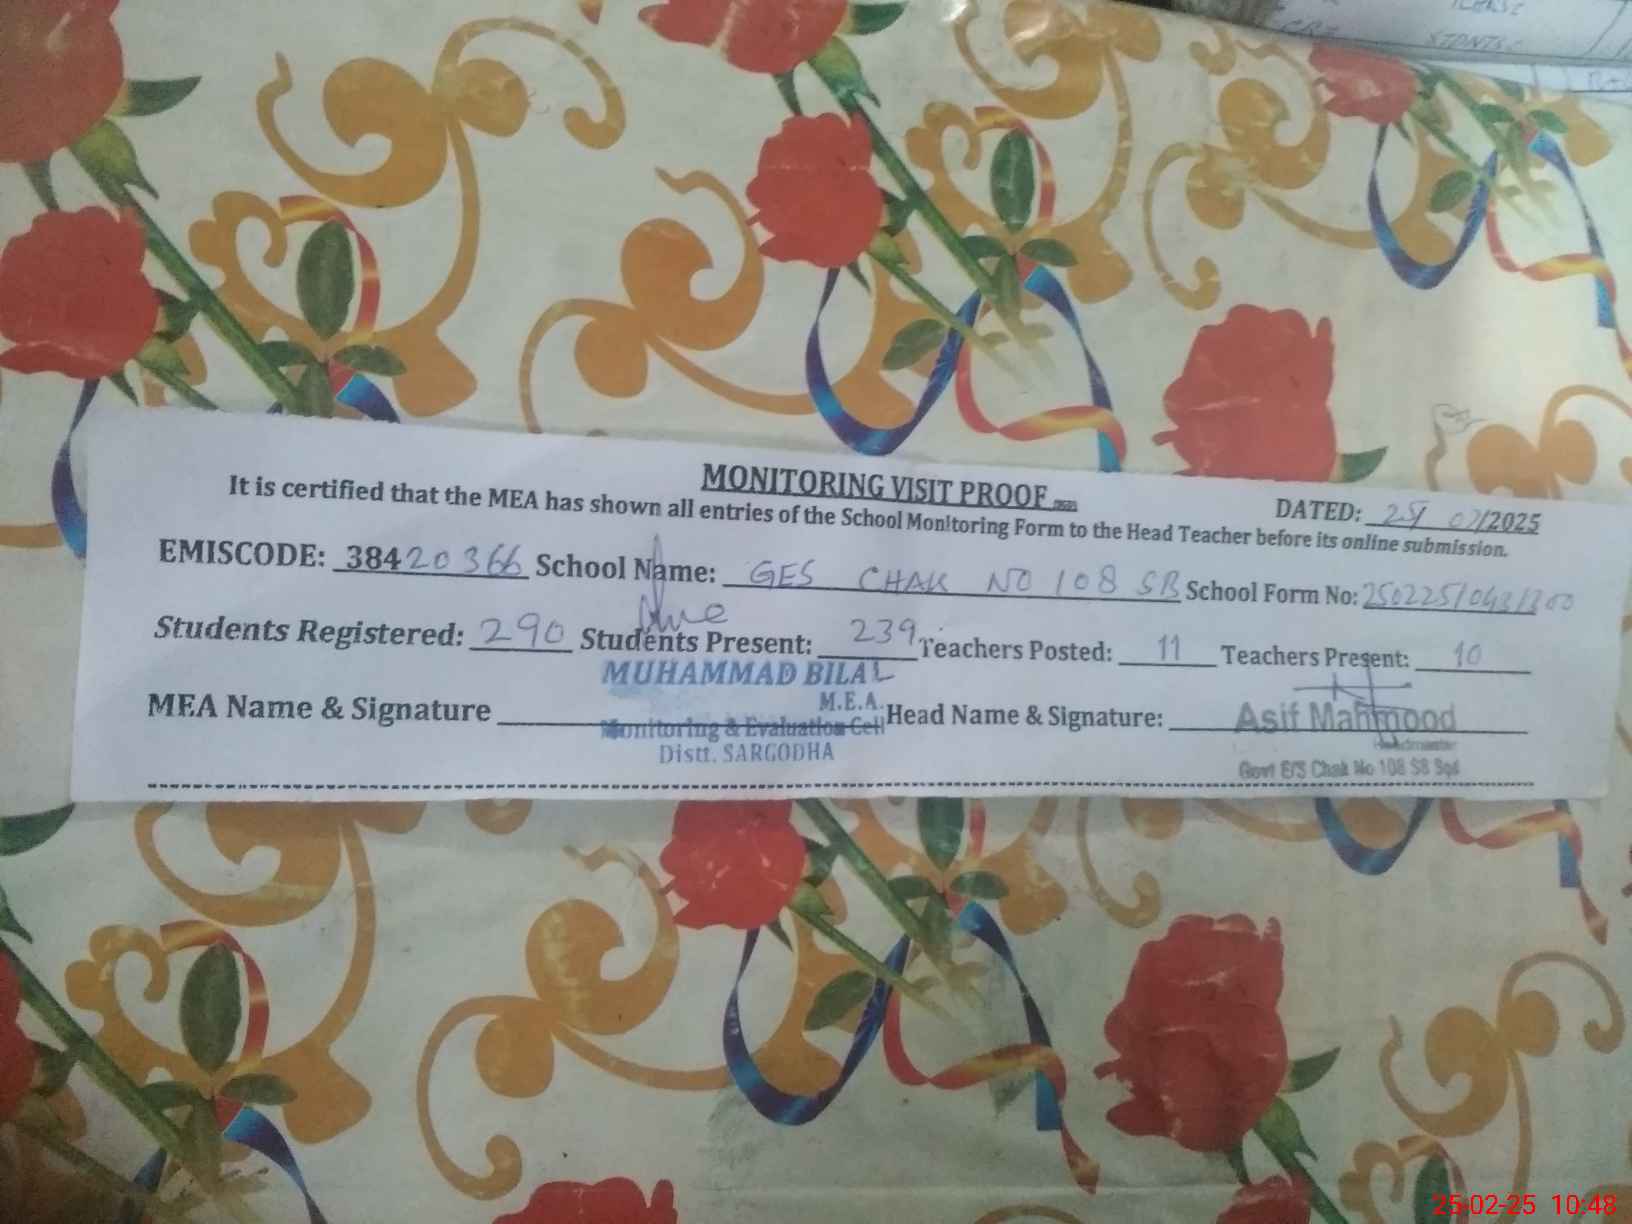 MONITORING VISIT PROOF
DATED: 25/ 02/2025
It is certified that the MEA has shown all entries of the School Monitoring Form to the Head Teacher before its online submission.
EMISCODE: 38420366 School Name: GES CHAK NO 108 SB School Form No:
Students Registered: 290 Students Present: 239 Teachers Posted: 11 Teachers Present: 10
MUHAMMAD BILAL
M.E.A.
MEA Name & Signature Head Name & Signature: Asif Mahmood
Monitoring & Evaluation Cell
Headmaster
Distt. SARGODHA
Govt E/S Chak No 108 SB Sgd
25-02-25 10:48